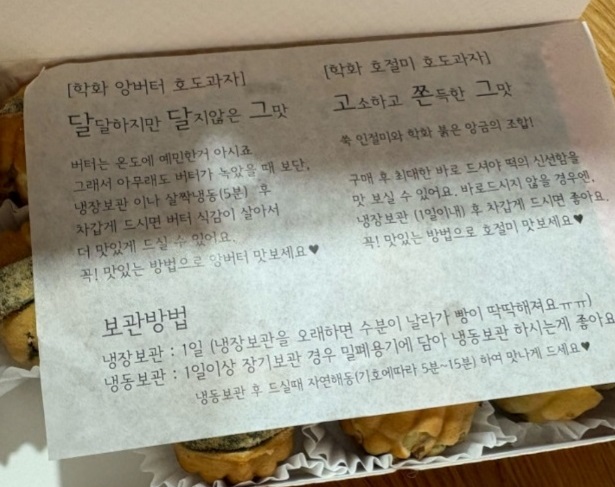 [학화 앙버터 호도과자]
달달하지만 달지않은 그맛
버터는 온도에 예민한거 아시죠
그래서 아무래도 버터가 녹았을 때 보단,
냉장보관 이나 살짝냉동(5분) 후
차갑게 드시면 버터 식감이 살아서
더 맛있게 드실 수 있어요.
꼭! 맛있는 방법으로 앙버터 맛보세요♥
[학화 호절미 호도과자]
고소하고 쫀득한 그맛
쑥 인절미와 학화 붉은 앙금의 조합!
구매 후 최대한 바로 드셔야 떡의 신선함을
맛 보실 수 있어요. 바로드시지 않을 경우엔,
냉장보관 (1일이내) 후 차갑게 드시면 좋아요.
꼭! 맛있는 방법으로 호절미 맛보세요♥
보관방법
냉장보관 : 1일 (냉장보관을 오래하면 수분이 날라가 빵이 딱딱해져요ㅠㅠ)
냉동보관 : 1일이상 장기보관 경우 밀폐용기에 담아 냉동보관 하시는게 좋아요
냉동보관 후 드실때 자연해동(기호에따라 5분~15분) 하여 맛나게 드세요♥